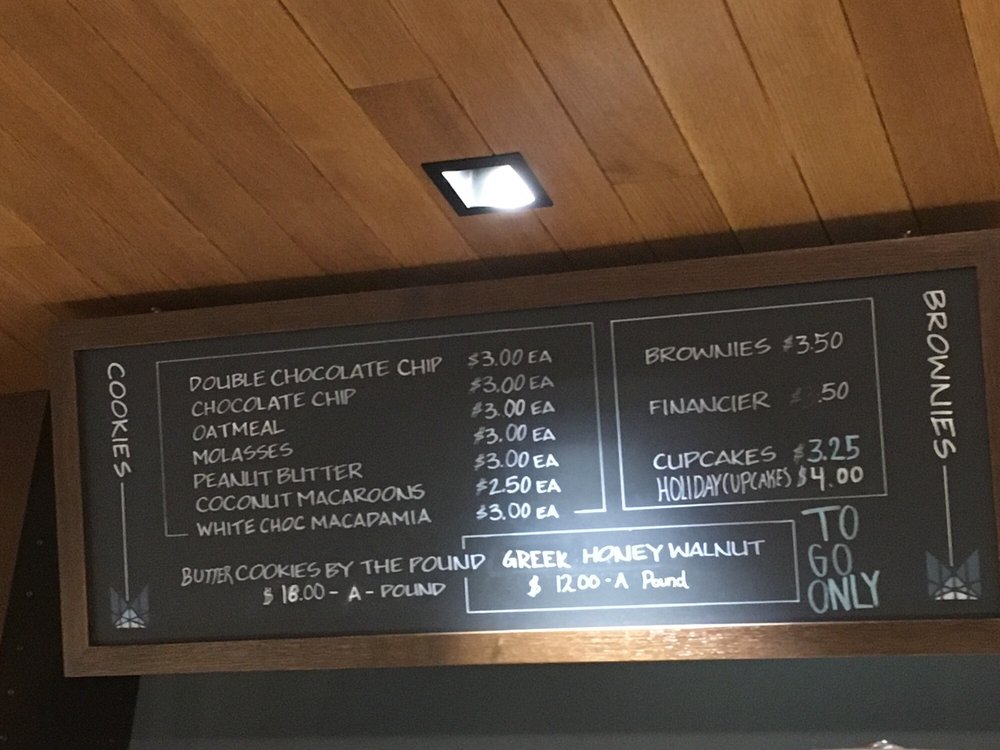 COOKIES
DOUBLE CHOCOLATE CHIP $3.00 EA
CHOCOLATE CHIP $3.00 EA
OATMEAL $3.00 EA
MOLASSES $3.00 EA
PEANUT BUTTER $3.00 EA
COCONUT MACAROONS $2.50 EA
WHITE CHOC MACADAMIA $3.00 EA
BUTTER COOKIES BY THE POUND
$ 18.00 - A - POUND
GREEK HONEY WALNUT
$ 12.00 - A Pound
BROWNIES $3.50
FINANCIER .50
CUPCAKES $3.25
HOLIDAY CUPCAKES $4.00
TO
GO
ONLY
BROWNIES